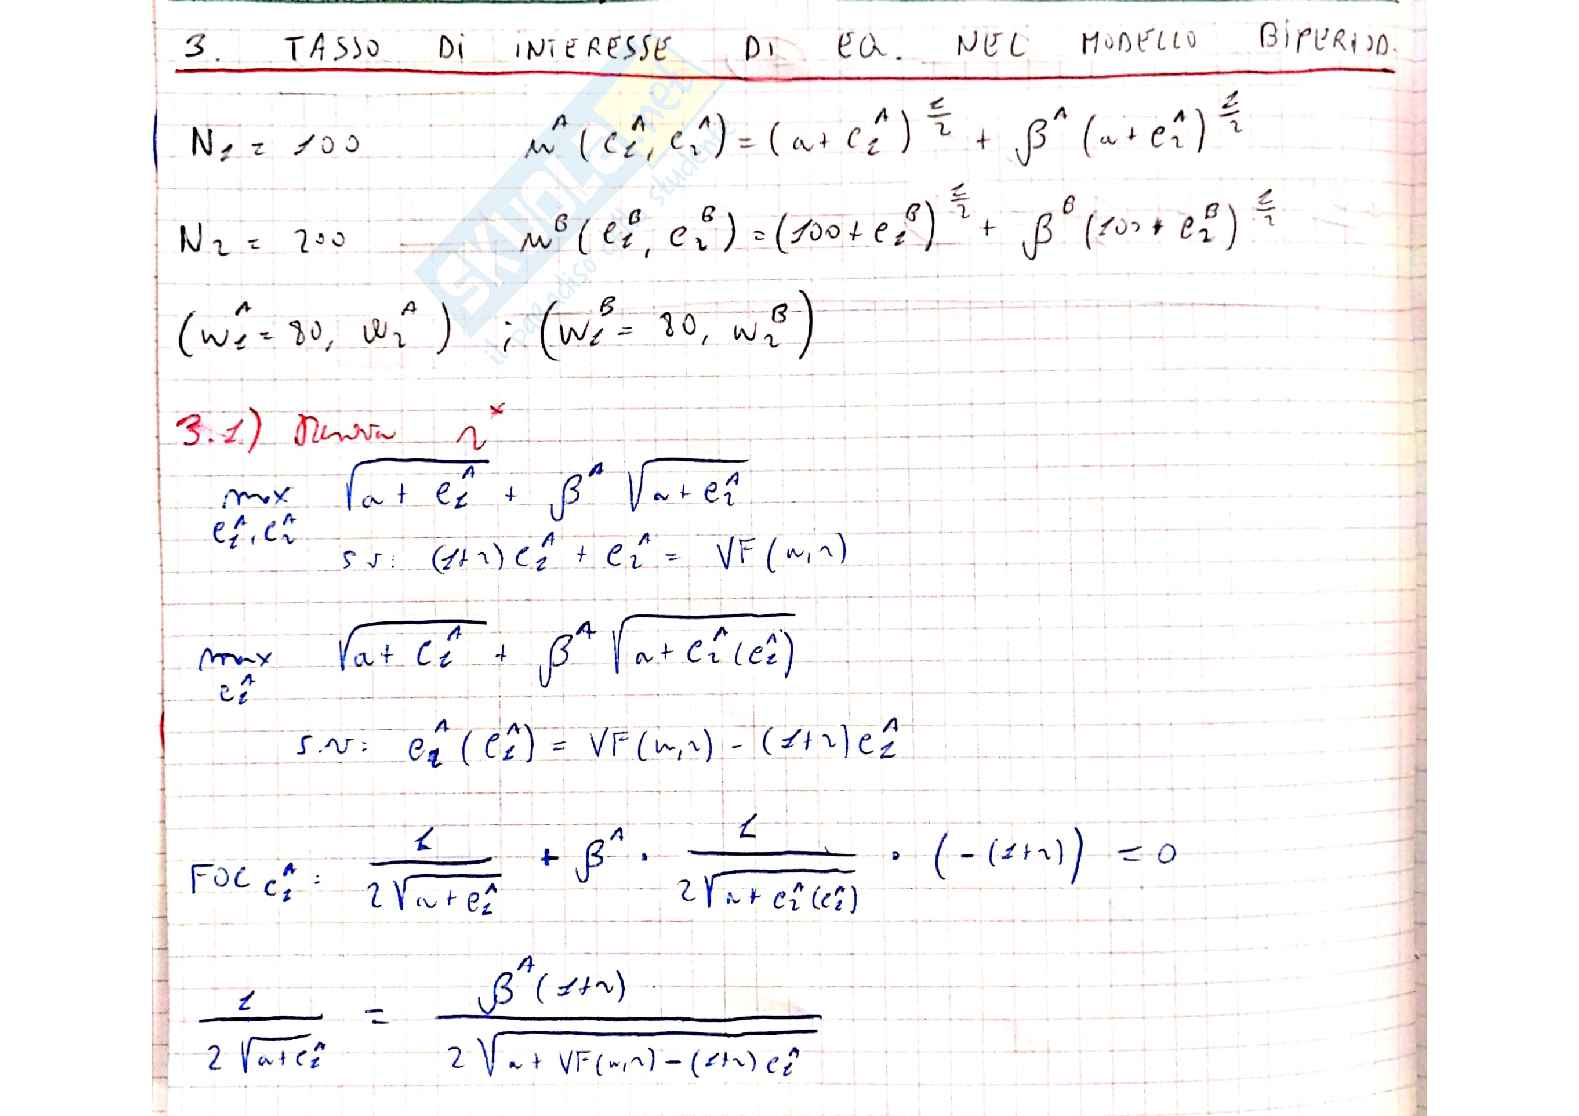 3. TASSO DI INTERESSE DI EQ. NEL MODELLO BIPERIOD.
N₁ = 100 u^A (c₁^A, c₂^A) = (a + c₁^A)^{1/2} + β^A (a + c₂^A)^{1/2}
N₂ = 200 u^B (c₁^B, c₂^B) = (100 + c₁^B)^{1/2} + β^B (100 + c₂^B)^{1/2}
(w₁^A = 80, w₂^A) ; (w₁^B = 80, w₂^B)
3.1) r*
max c₁^A, c₂^A √(a + c₁^A) + β^A √(a + c₂^A)
s.v: (1+r) c₁^A + c₂^A = VF(w,r)
max c₁^A √(a + c₁^A) + β^A √(a + c₂^A (c₁^A))
s.v: c₂^A (c₁^A) = VF(w,r) - (1+r) c₁^A
FOC c₁^A : 1 / (2√(a + c₁^A)) + β^A · 1 / (2√(a + c₂^A (c₁^A))) · (-(1+r)) = 0
1 / (2√(a + c₁^A)) = β^A (1+r) / (2√(a + VF(w,r) - (1+r) c₁^A))
SKUOLA.net
il paradiso dello studente